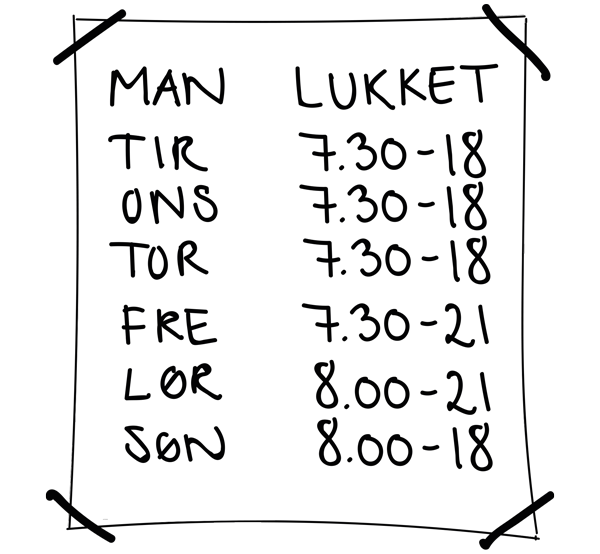 MAN LUKKET
TIR 7.30-18
ONS 7.30-18
TOR 7.30-18
FRE 7.30-21
LØR 8.00-21
SØN 8.00-18